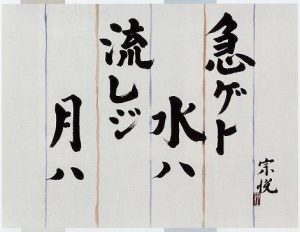 月ハ
流レジ
水ハ
急ゲト
宗悦